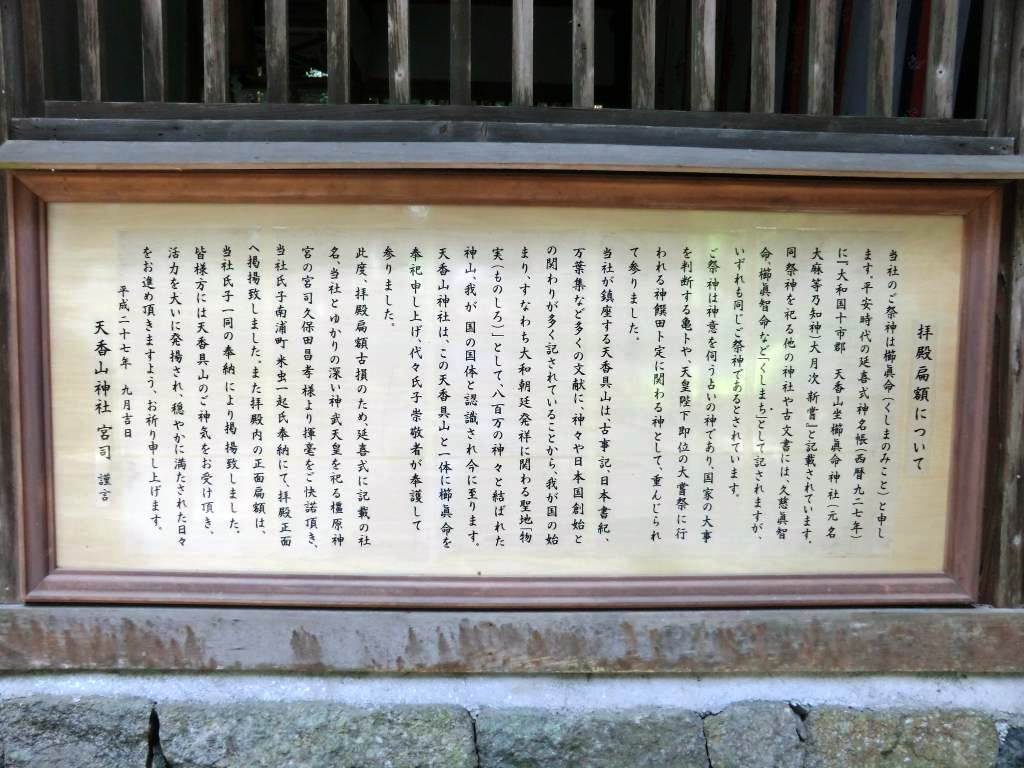 拝殿扁額について
当社のご祭神は櫛眞命(くしまのみこと)と申し
ます。平安時代の延喜式神名帳(西暦九二七年)
に『大和国十市郡 天香山坐櫛眞命神社(元名
大麻等乃知神)大月次 新嘗』と記載されています。
同祭神を祀る他の神社や古文書には、久慈眞智
命、櫛眞智命など「くしまち」として記されますが、
いずれも同じご祭神であるとされています。
ご祭神は神意を伺う占いの神であり、国家の大事
を判断する亀卜や、天皇陛下即位の大嘗祭に行
われる神饌田卜定に関わる神として、重んじられ
て参りました。
当社が鎮座する天香具山は古事記、日本書紀、
万葉集など多くの文献に、神々や日本国創始と
の関わりが多く記されていることから、我が国の始
まり、すなわち大和朝廷発祥に関わる聖地「物
実(ものしろ)」として、八百万の神々と結ばれた
神山、我が国の国体と認識され今に至ります。
天香山神社は、この天香具山と一体に櫛眞命を
奉祀申し上げ、代々氏子崇敬者が奉護して
参りました。
此度、拝殿扁額古損のため、延喜式に記載の社
名、当社とゆかりの深い神武天皇を祀る橿原神
宮の宮司久保田昌孝様より揮毫をご快諾頂き、
当社氏子南浦町 米虫一起氏奉納にて、拝殿正面
へ掲揚致しました。また拝殿内の正面扁額は、
当社氏子一同の奉納により掲揚致しました。
皆様方には天香具山のご神気をお受け頂き、
活力を大いに発揚され、穏やかに満たされた日々
をお進め頂きますよう、お祈り申し上げます。
平成二十七年 九月吉日
天香山神社 宮司 謹言